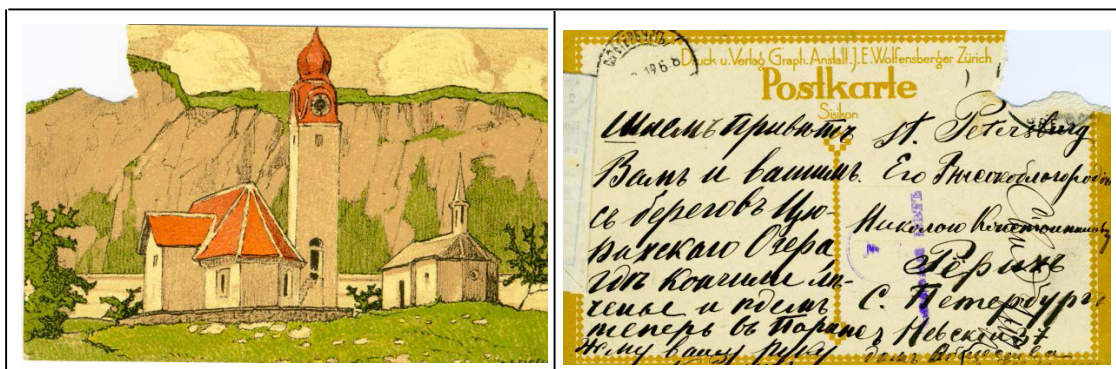 Druck u. Verlag Graph. Anstalt J. E. Wolfensberger Zürich
Postkarte
Sisikon
Шлемъ привѣтъ
Вамъ и вашимъ
съ береговъ Цю-
рихскаго Озера
гдѣ кончили лѣ-
ченье и ѣдемъ
теперь въ
Жму вашу руку
St. Petersburg
Его Высокоблагородію
Николаю Константиновичу
Рёрихъ
С. Петербургъ
Невскій